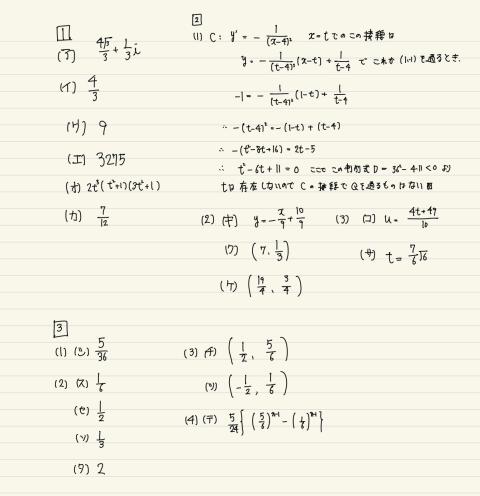 1
(ア) 4√3/3 + 1/3 i
(イ) 4/3
(ウ) 9
(エ) 3275
(オ) 2t²(t²+1)(3t²+1)
(カ) 7/12
2
(1) C: y' = - 1/(x-4)² x=tでのこの接線は
y = - 1/(t-4)² (x-t) + 1/t-4 で これが (1,-1) を通るとき.
-1 = - 1/(t-4)² (1-t) + 1/t-4
∴ -(t-4)² = -(1-t) + (t-4)
∴ -(t²-8t+16) = 2t-5
∴ t²-6t+11=0 ここで この判別式 D = 36-4·11<0 より
tは存在しないので Cの接線で Qを通るものはない
(2) (キ) y = -x/9 + 10/9
(ク) (7, 1/3)
(ケ) (19/4, 3/4)
(3) (コ) u = 4t+49/10
(サ) t = 7/6 √6
3
(1) (シ) 5/36
(2) (ス) 1/6
(セ) 1/2
(ソ) 1/3
(タ) 2
(3) (チ) (1/2, 5/6)
(ツ) (-1/2, 1/6)
(4) (テ) 5/24 {(5/6)ⁿ⁻¹ - (1/6)ⁿ⁻¹}